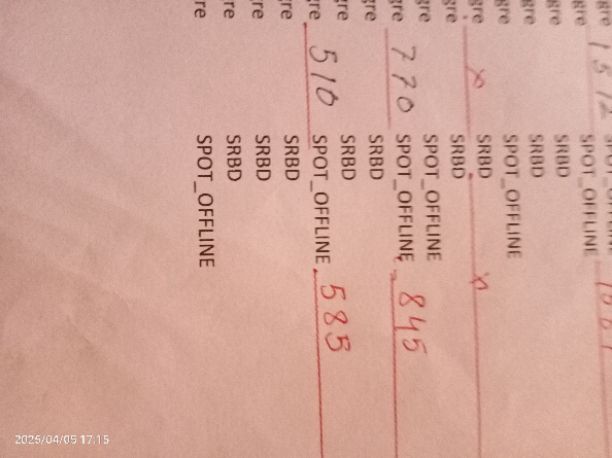 gre SPOT_OFFLINE
gre SRBD
gre SRBD
gre SPOT_OFFLINE
gre x SRBD x
gre SRBD
gre SPOT_OFFLINE
gre 770 SPOT_OFFLINE 845
gre SRBD
gre SRBD
gre 510 SPOT_OFFLINE 585
gre SRBD
gre SRBD
re SRBD
re SPOT_OFFLINE
2025/04/05 17:15